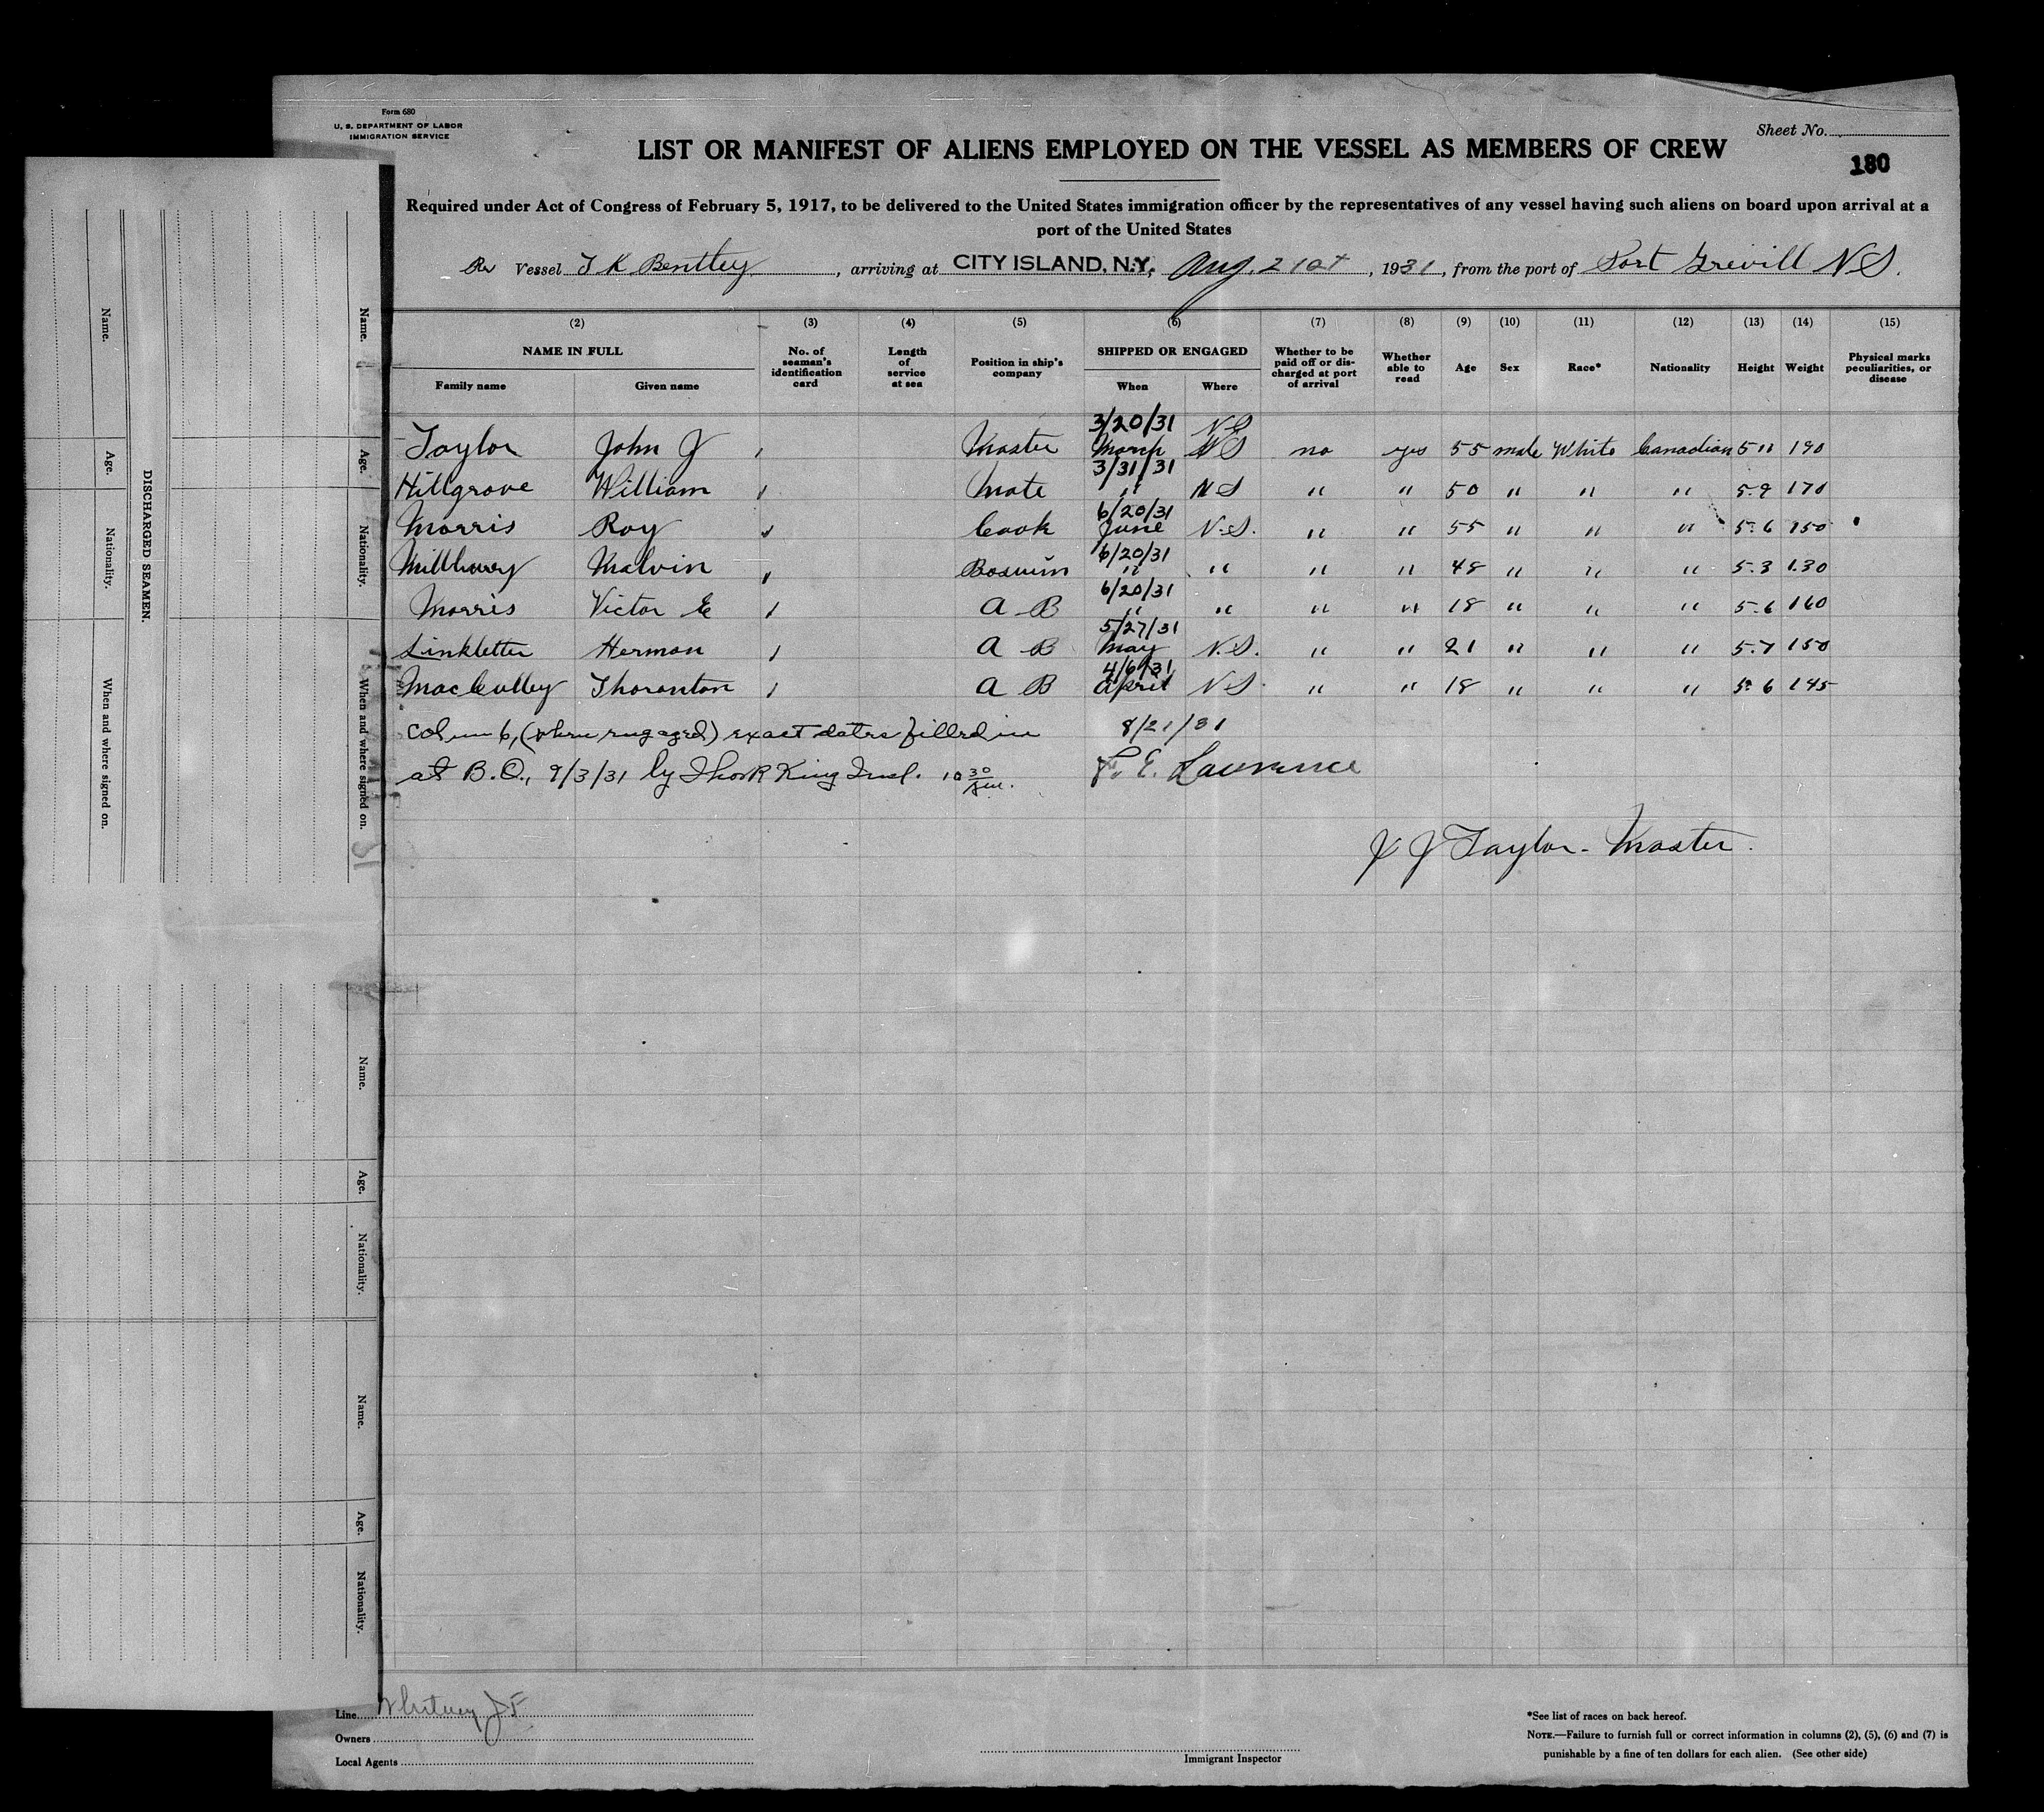 Form 680
U. S. DEPARTMENT OF LABOR
IMMIGRATION SERVICE
Sheet No.
LIST OR MANIFEST OF ALIENS EMPLOYED ON THE VESSEL AS MEMBERS OF CREW
180
Required under Act of Congress of February 5, 1917, to be delivered to the United States immigration officer by the representatives of any vessel having such aliens on board upon arrival at a
port of the United States
Vessel T K Bentley, arriving at CITY ISLAND, N.Y., Aug. 21st, 1931, from the port of Port Grevill N S.
(2) (3) (4) (5) (6) (7) (8) (9) (10) (11) (12) (13) (14) (15)
NAME IN FULL No. of seaman's identification card Length of service at sea Position in ship's company SHIPPED OR ENGAGED Whether to be paid off or discharged at port of arrival Whether able to read Age Sex Race* Nationality Height Weight Physical marks peculiarities, or disease
Family name Given name When Where
3/20/31 N S
Taylor John J Master March N S no yes 55 male White Canadian 5 11 190
3/31/31
Hillgrove William Mate " N S " " 50 " " " 5.9 170
6/20/31
Morris Roy Cook June N.S. " " 55 " " " 5.6 150
6/20/31
Malvin " " " " 48 " " " 5.3 130
6/20/31
Morris Victor E A B " " " " 18 " " " 5.6 160
5/27/31
Linkletter Herman A B May N.S. " " 21 " " " 5.7 150
4/6/31
MacCulley Thoranton A B April N S. " " 18 " " " 5.6 145
Column 6, (when engaged) exact dates filled in 8/21/31
at B.O., 9/3/31 by King Insp. 10 30 am. E. Lawrence
J J Taylor - Master.
DISCHARGED SEAMEN.
Name. Age. Nationality. When and where signed on.
Name. Age. Nationality. When and where signed on.
Name. Age. Nationality.
Name. Age. Nationality.
Line Whitney J F
Owners
Local Agents
Immigrant Inspector
*See list of races on back hereof.
NOTE.—Failure to furnish full or correct information in columns (2), (5), (6) and (7) is
punishable by a fine of ten dollars for each alien. (See other side)